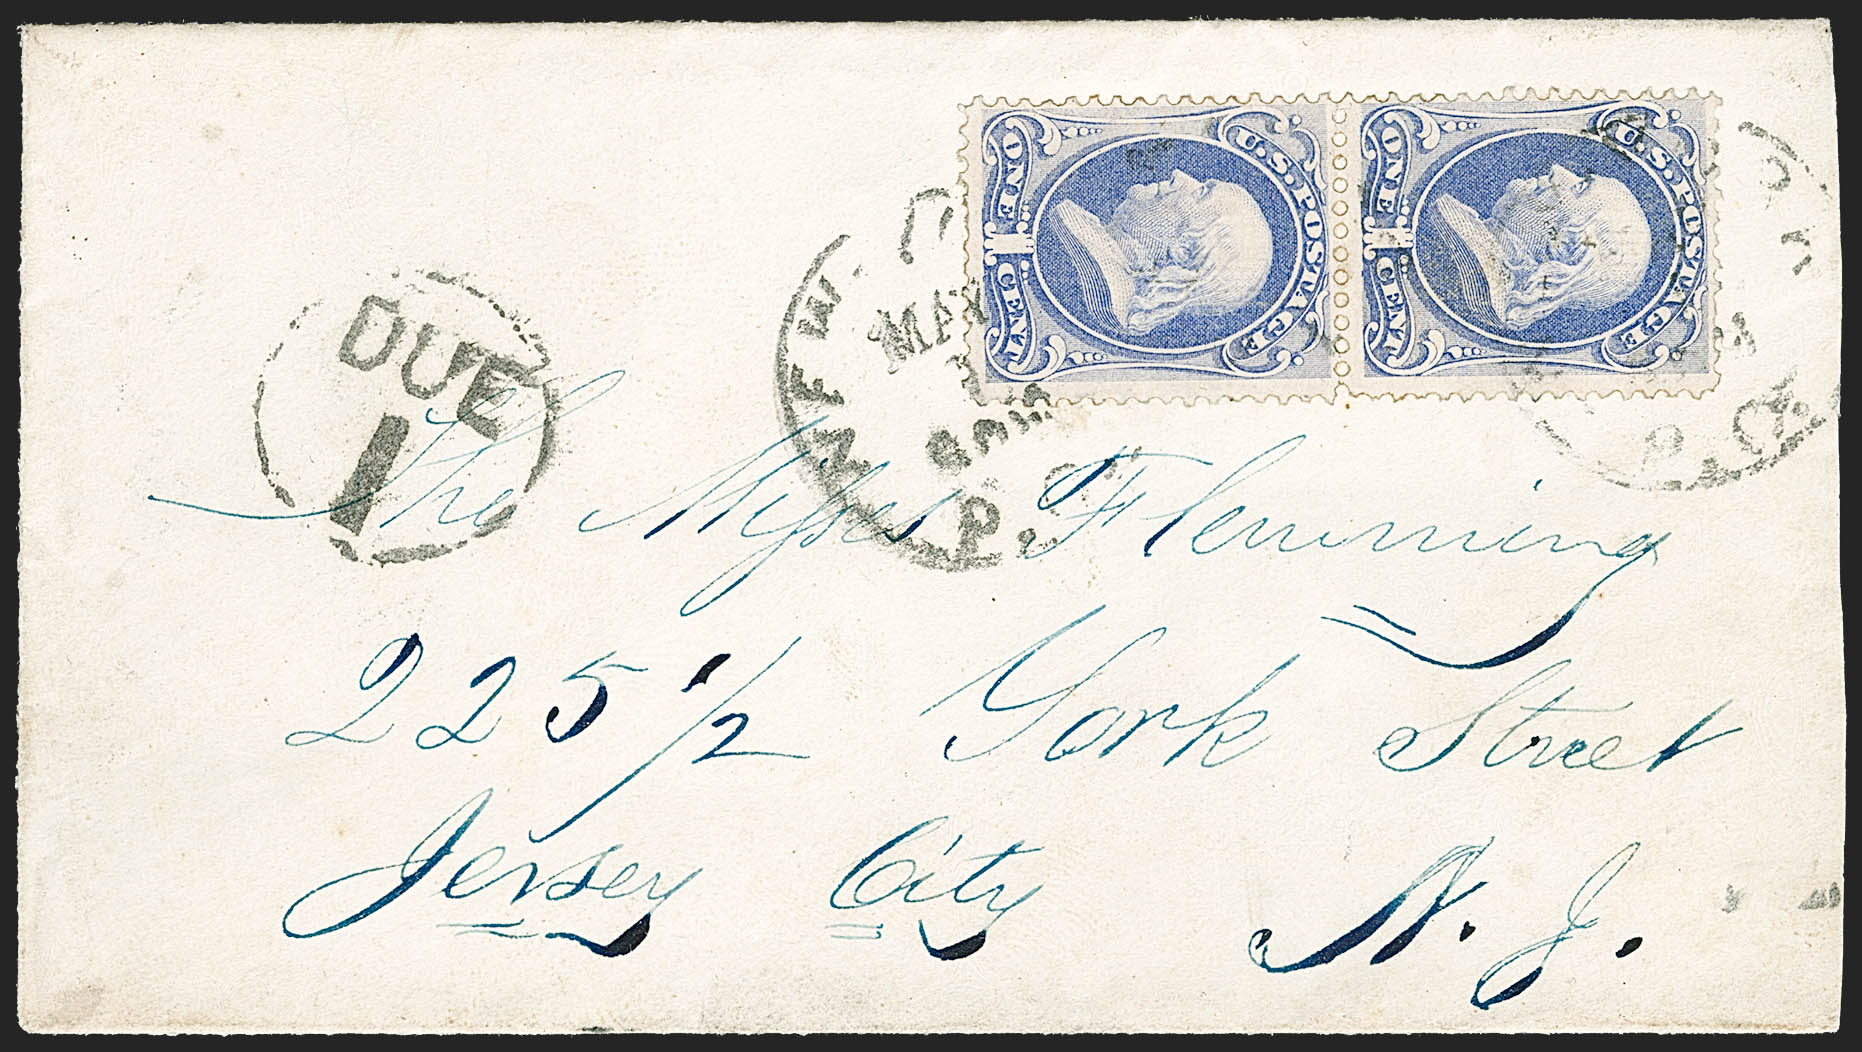 U.S. POSTAGE
ONE 1 CENT
U.S. POSTAGE
ONE 1 CENT
DUE
1
NEW
MAY
P.O.
P.O.
The Misses Flemming
225 1/2 York Street
Jersey City N.J.